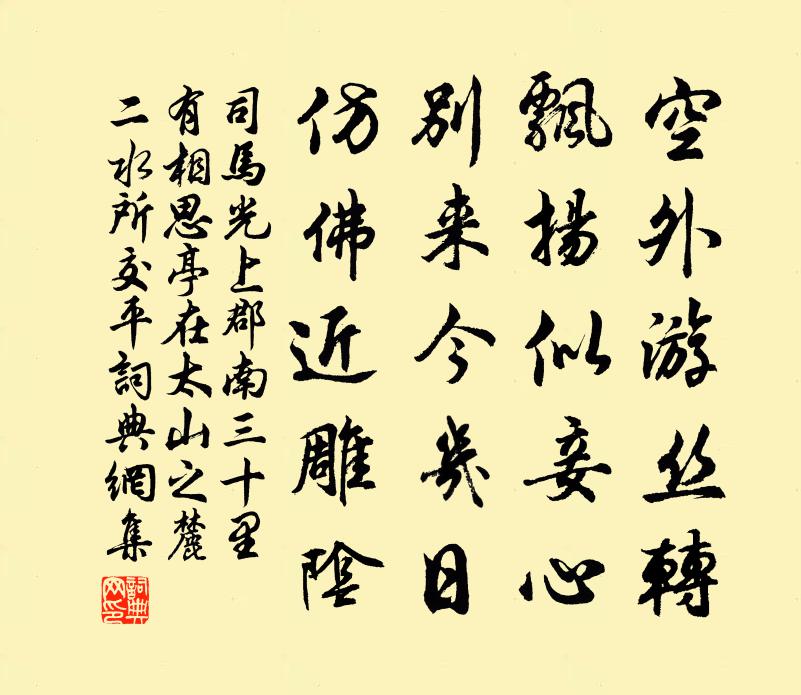 空外游丝轉
飄揚似妾心
别来今幾日
仿佛近雕陰
司馬光上郡南三十里
有相思亭在太山之麓
二水所交平詞典網集
詞典网印